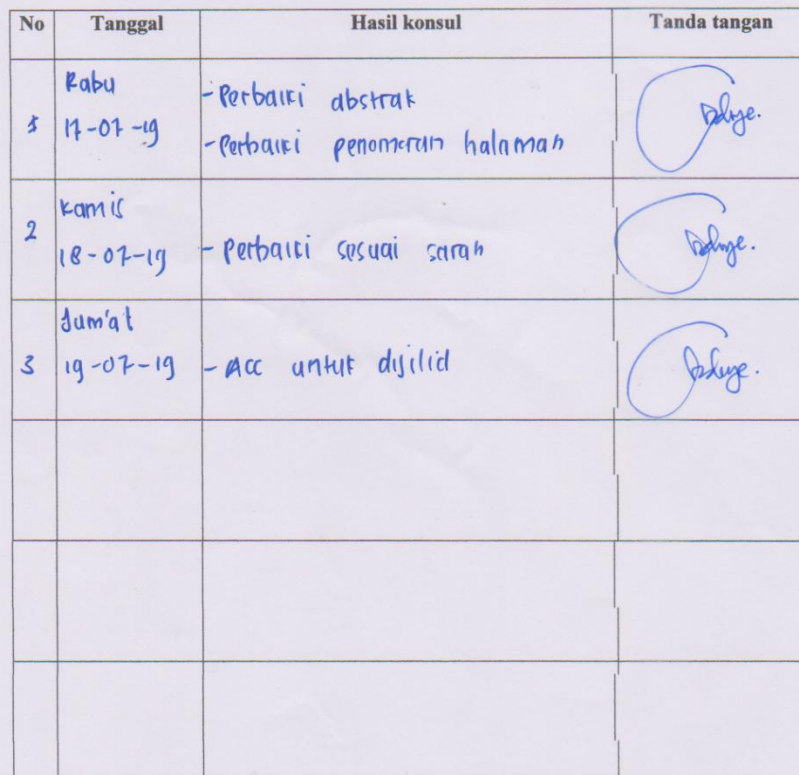 No Tanggal Hasil konsul Tanda tangan
Rabu
17-07-19
- Perbaiki abstrak
- Perbaiki penomeran halaman
2 Kamis
18-07-19 - Perbaiki sesuai saran
Jum'at
3 19-07-19 - Acc untuk dijilid